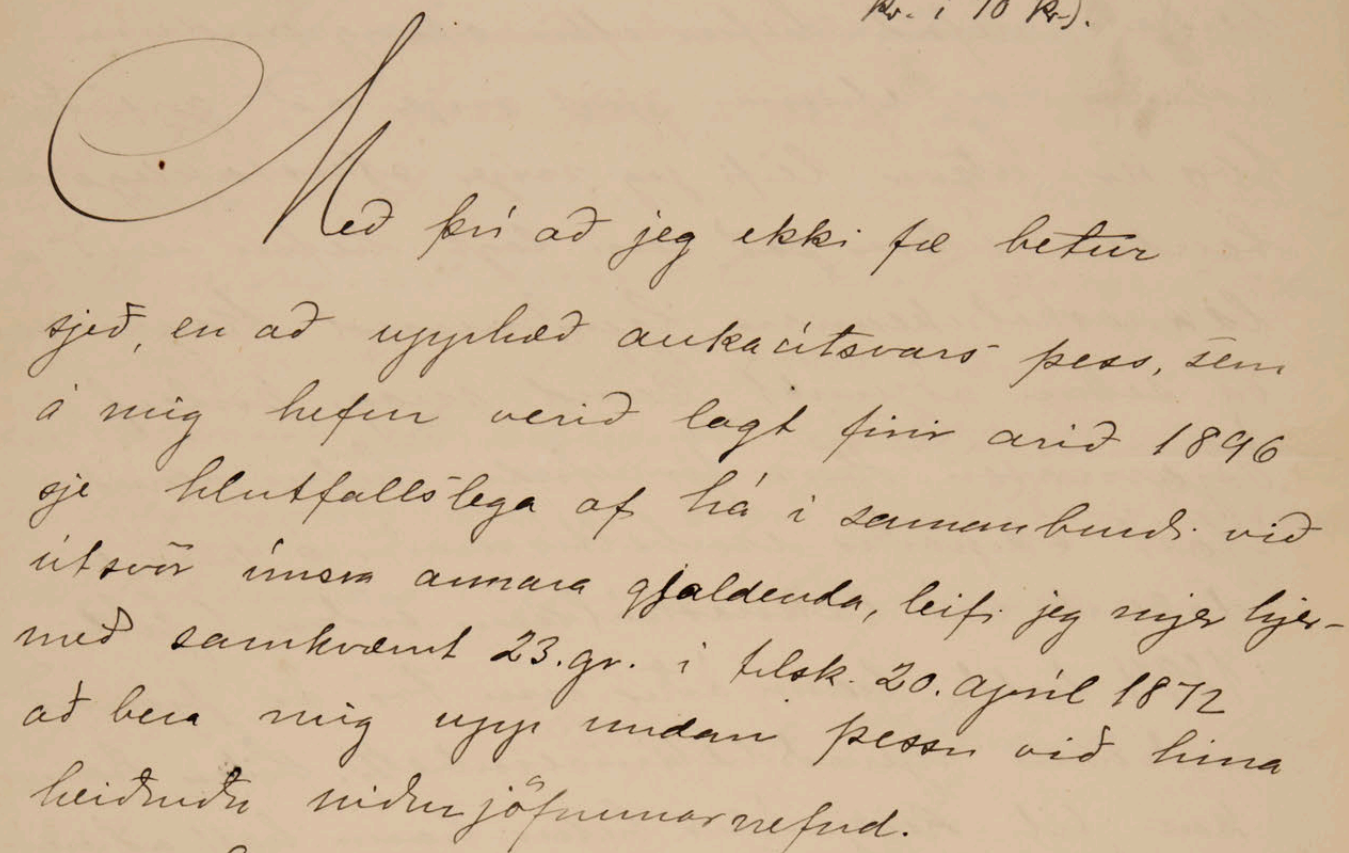 kr. í 10 kr.).
Með því að jeg ekki fæ betur
sjeð, en að upphæð aukaútsvars þess, sem
á mig hefur verið lagt firir árið 1896
sje hlutfallslega of há i samanburði við
útsvör ímsra annara gjaldenda, leifi jeg mjer hjer-
með samkvæmt 23. gr. i tilsk. 20. apríl 1872
að bera mig upp undan þessu við hina
heiðruðu niðurjöfnunarnefnd.